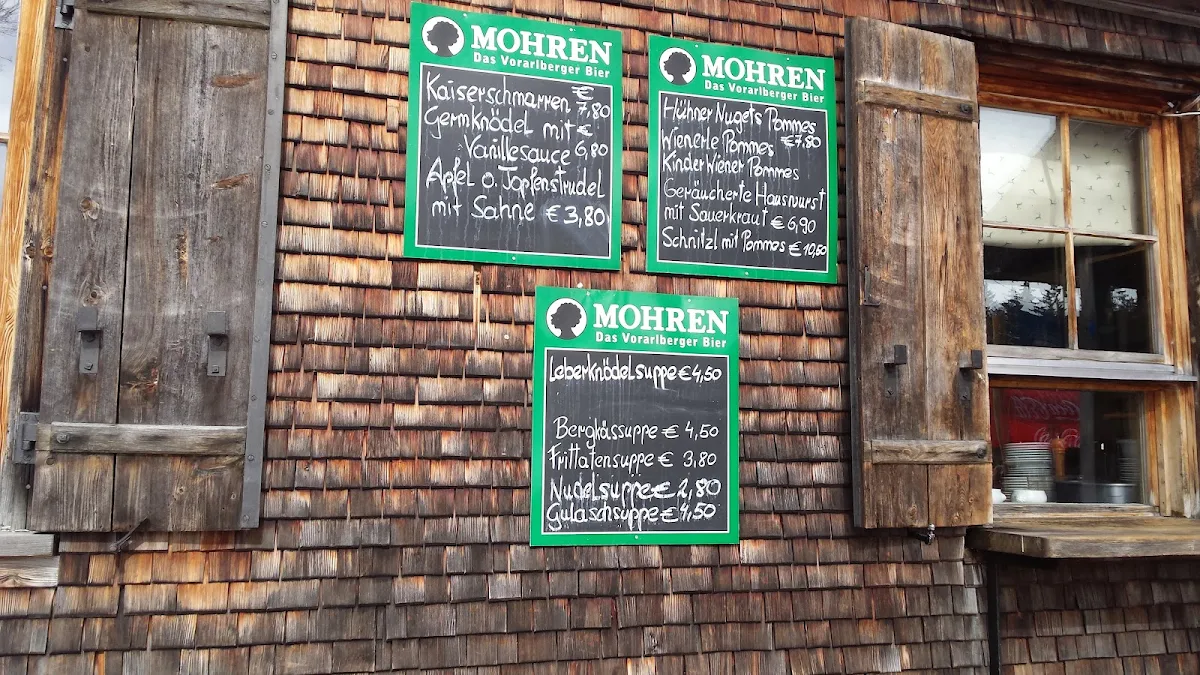 MOHREN
Das Vorarlberger Bier
Kaiserschmarren €
7,80
Germknödel mit €
Vanillesauce 6,80
Apfel o. Topfenstrudel
mit Sahne € 3,80
MOHREN
Das Vorarlberger Bier
Hühner Nugets Pommes
€ 7,80
Wienerle Pommes
Kinder Wiener Pommes
Geräucherte Hauswurst
mit Sauerkraut € 6,90
Schnitzl mit Pommes € 10,50
MOHREN
Das Vorarlberger Bier
Leberknödelsuppe € 4,50
Bergkässuppe € 4,50
Frittatensuppe € 3,80
Nudelsuppe € 2,80
Gulaschsuppe € 4,50